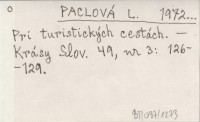 o PACLOVÁ L. 1972...
Pri turistických cestách. —
Krásy Slov. 49, nr 3: 126-
-129.